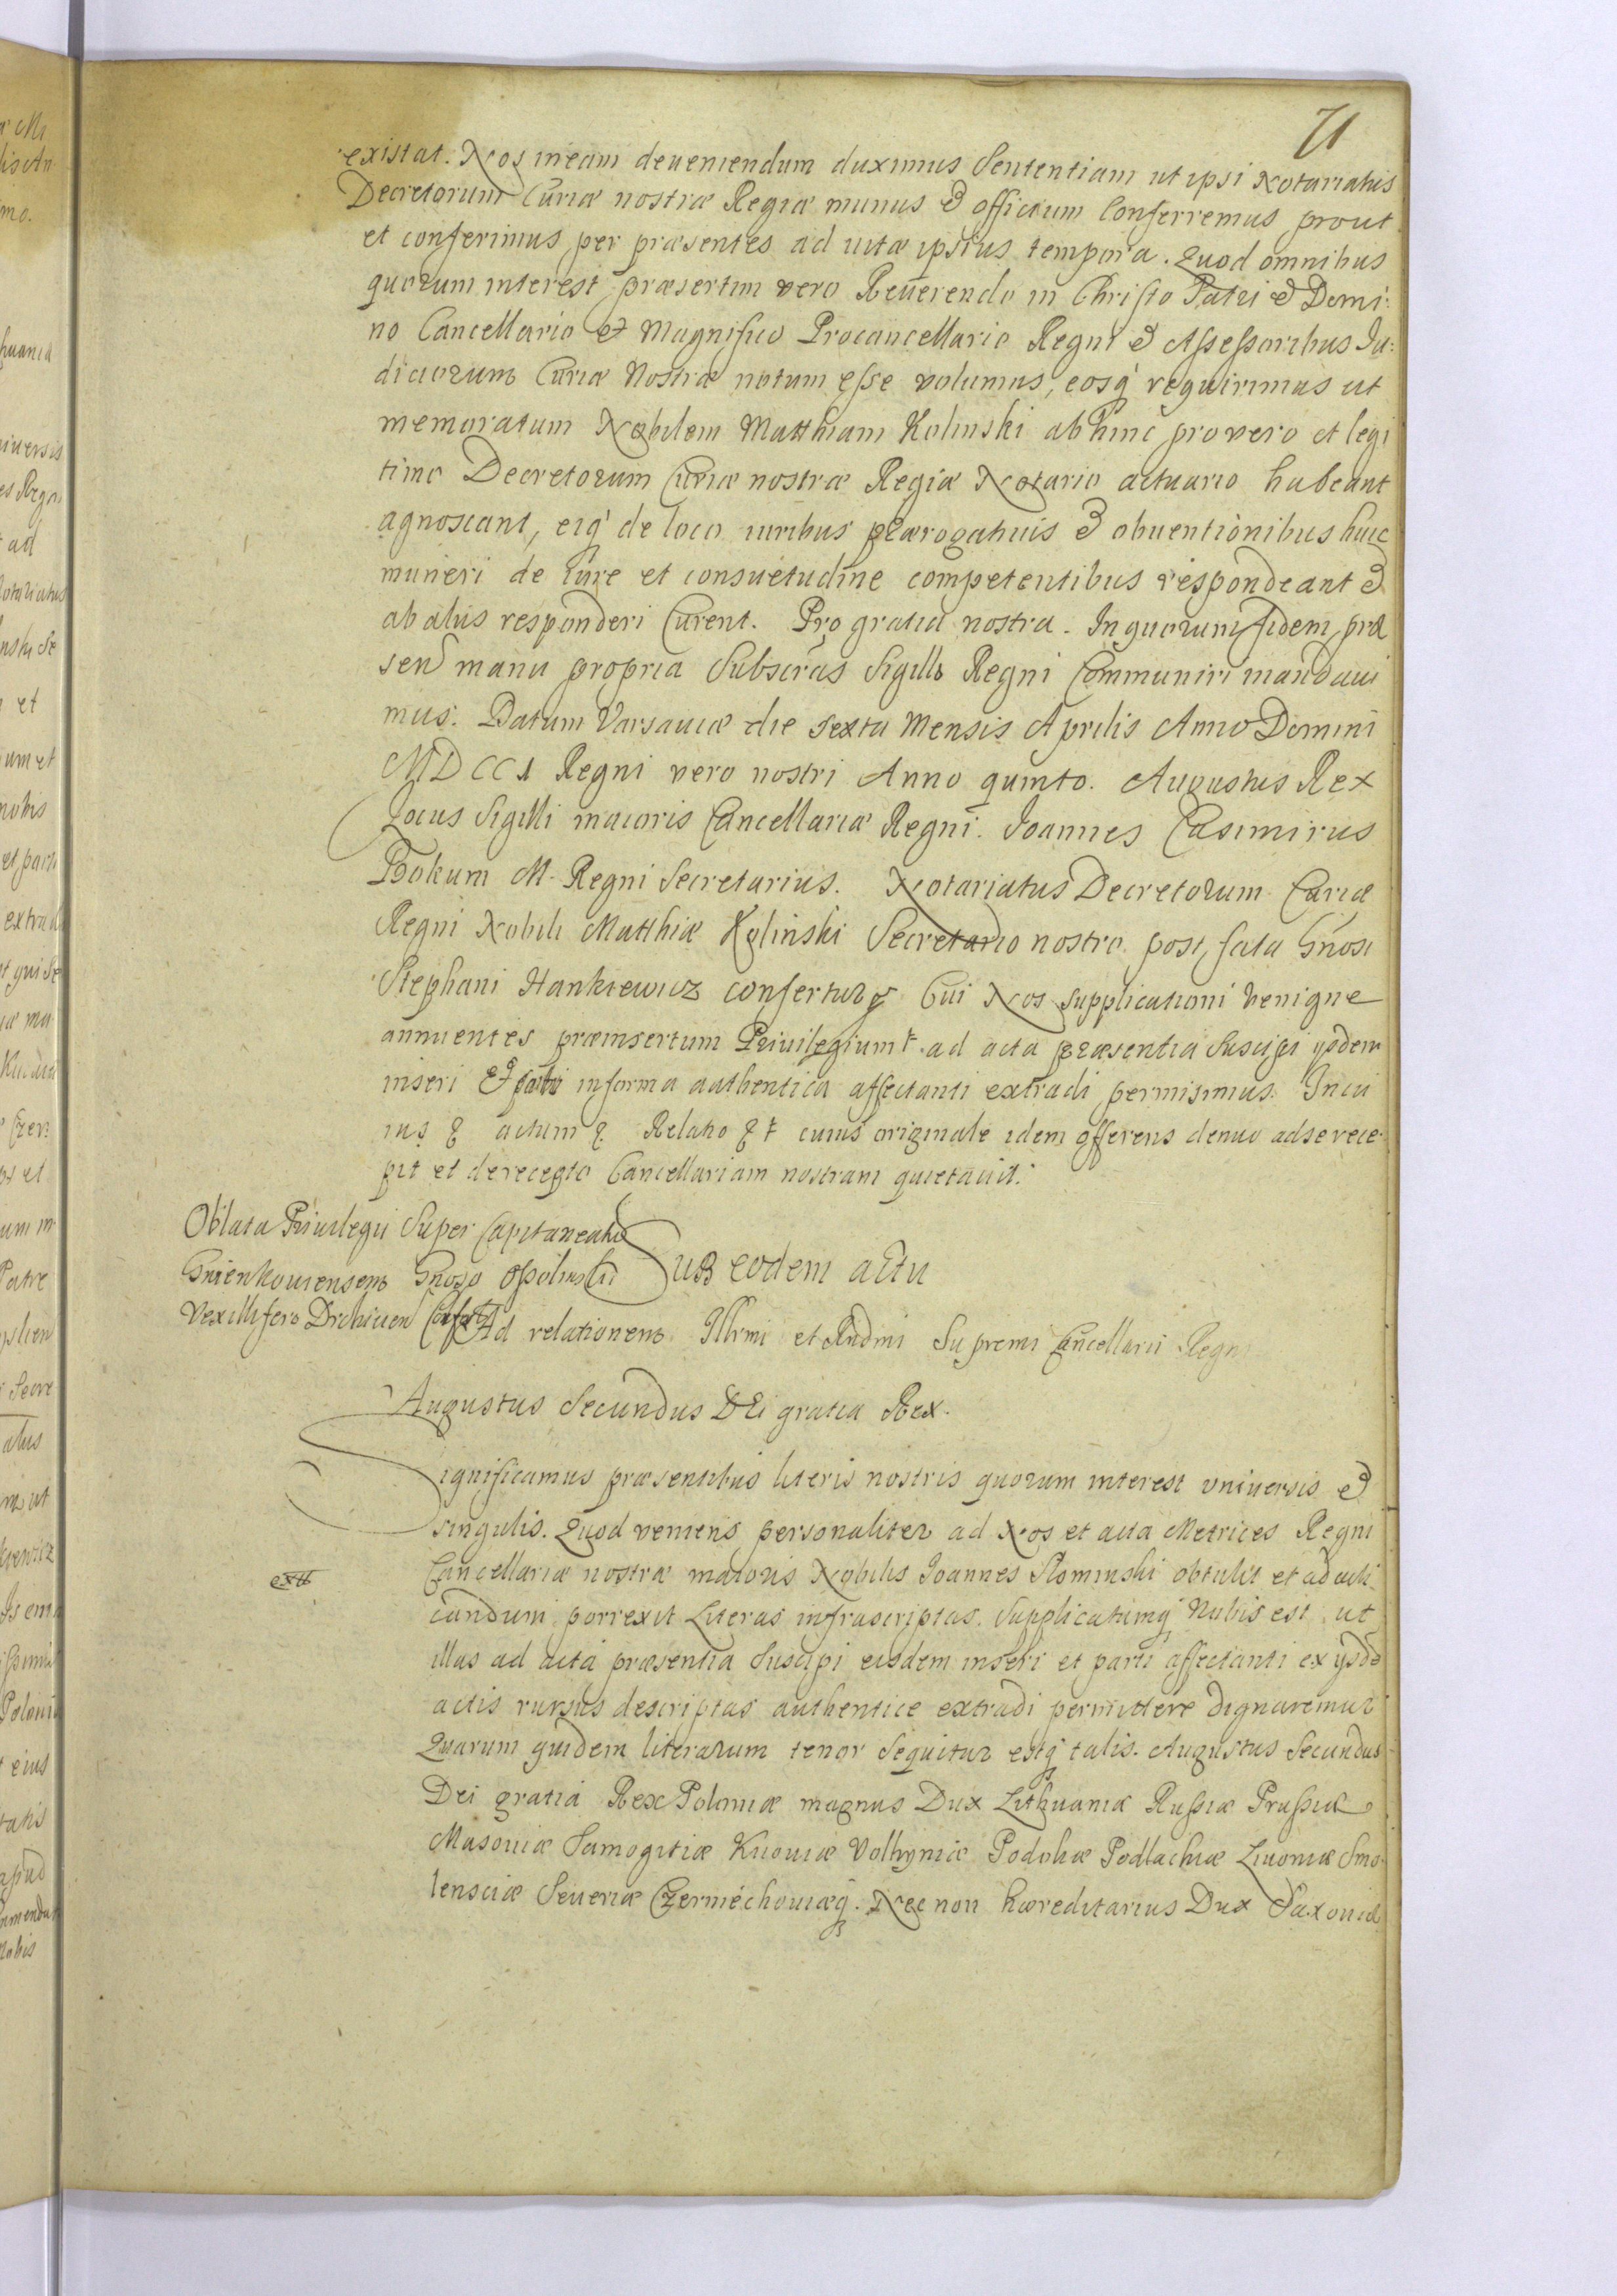 71
existat. Nos in eam deveniendum duximus Sententiam ut ipsi Notariatus
Decretorum Curiæ nostræ Regiæ munus & officium Conferremus prout
et conferimus per præsentes ad uitæ ipsius tempora. Quod omnibus
quorum interest præsertim vero Reuerendo in Christo Patri & Domi:
no Cancellario et Magnifico Procancellario Regni & Assessoribus Ju:
diciorum Curiæ Nostræ notum esse volumus, eosq̃ requirimus ut
memoratum Nobilem Matthiam Kolinski abhinc pro vero et legi
timo Decretorum Curiæ nostræ Regiæ Notario actuario habeant
agnoscant, eiq̃ de loco iuribus prærogatiuis & obuentionibus huic
muneri de Iure et consuetudine competentibus respondeant &
ab aliis responderi Curent. Pro gratia nostra. In quorum fidem præ
sen manu propria Subscras Sigillo Regni Communiri mandaui
mus. Datum Varsauiæ die sexta Mensis Aprilis Anno Domini
MDCC1 Regni vero nostri Anno quinto. Augustus Rex
Locus Sigilli maioris Cancellariæ Regni. Joannes Casimirus
Bokum M. Regni Secretarius. Notariatus Decretorum Curiæ
Regni Nobili Matthiæ Kolinski Secretario nostro post fata Gnosi
Stephani Hankiewicz confertur Cui Nos supplicationi benigne
annuentes præinsertum Priuilegium ad acta præsentia Suscipi ysdem
inseri et parti in forma authentica affectanti extradi permisimus. In cu
ius actum Relatio cuius originale idem offerens denuo ad se rece
pit et de recepto Cancellariam nostram quietauit.
Oblata Priuilegii Super Capitaneatu
Gnienkouiensem Gnoso Opolinski
Vexillifero Drohicen
Sub eodem actu
Ad relationem Illrmi et Rndmi Supremi Cancellarii Regni
Augustus Secundus DEi gratia Rex.
Significamus præsentibus literis nostris quorum interest vniuersis &
singulis. Quod veniens personaliter ad Nos et acta Metrices Regni
Cancellariæ nostræ maioris Nobilis Joannes Slominski obtulit et ad acti
extt
candum porrexit Literas infrascriptas. Supplicatumq̃ Nobis est ut
illas ad acta præsentia Suscipi eisdem inseri et parti affectanti ex ysdē
actis rursus descriptas authentice extradi permittere dignaremur
Quarum quidem literarum tenor Sequitur estq̃ talis. Augustus Secundus
Dei gratia Rex Poloniæ magnus Dux Lithuaniæ Russiæ Prussiæ
Masouiæ Samogitiæ Kiiouiæ Volhyniæ Podoliæ Podlachiæ Liuoniæ Smo
lensciæ Seueriæ Czerniechouiæq̃. Nec non hæreditarius Dux Saxoniæ